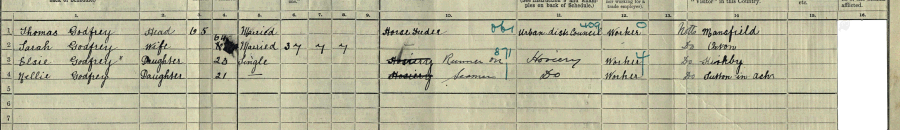 1. 2. 3. 4. 5. 6. 7. 8. 9. 10. 11. 12. 14.
1 Thomas Godfrey Head 65 Married Horse 061 Urban dist Council 409 Worker 0 Notts Mansfield
2 Sarah Godfrey Wife Married 37 7 7 Do
3 Elsie Godfrey Daughter 23 Single Hosiery Runner on 871 Hosiery Worker Do Kirkby
4 Nellie Godfrey Daughter 21 Hosiery Seamer Do Worker Do Sutton in Ash
5
6
7